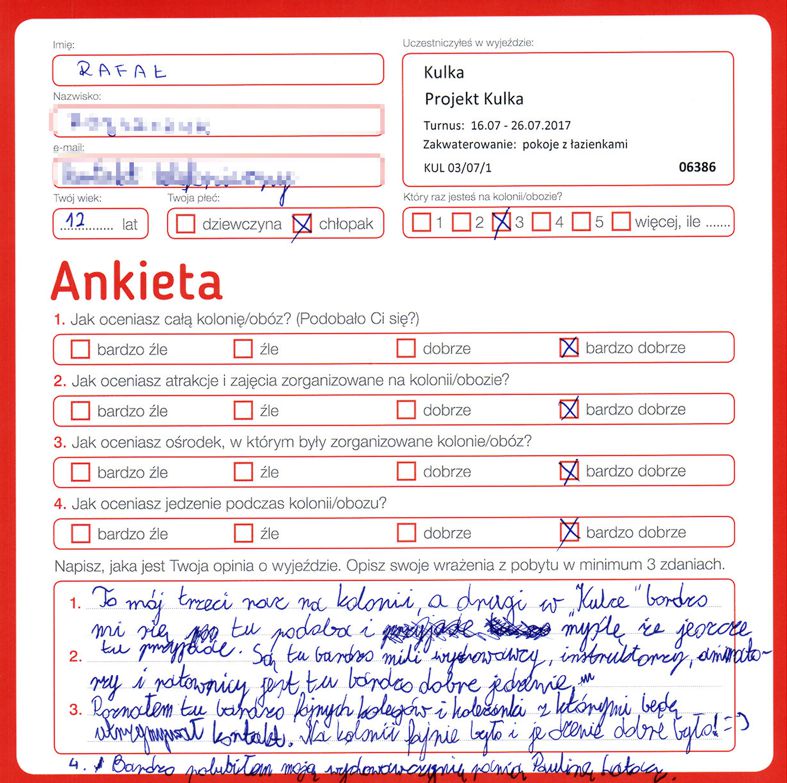 Imię:
RAFAŁ
Nazwisko:
e-mail:
Twój wiek:
12 lat
Twoja płeć:
dziewczyna chłopak
Uczestniczyłeś w wyjeździe:
Kulka
Projekt Kulka
Turnus: 16.07 - 26.07.2017
Zakwaterowanie: pokoje z łazienkami
KUL 03/07/1 06386
Który raz jesteś na kolonii/obozie?
1 2 3 4 5 więcej, ile .......
Ankieta
1. Jak oceniasz całą kolonię/obóz? (Podobało Ci się?)
bardzo źle źle dobrze bardzo dobrze
2. Jak oceniasz atrakcje i zajęcia zorganizowane na kolonii/obozie?
bardzo źle źle dobrze bardzo dobrze
3. Jak oceniasz ośrodek, w którym były zorganizowane kolonie/obóz?
bardzo źle źle dobrze bardzo dobrze
4. Jak oceniasz jedzenie podczas kolonii/obozu?
bardzo źle źle dobrze bardzo dobrze
Napisz, jaka jest Twoja opinia o wyjeździe. Opisz swoje wrażenia z pobytu w minimum 3 zdaniach.
1. To mój trzeci raz na kolonii, a drugi w „Kulce" bardzo
mi się tu podoba i myślę że jeszcze
tu przyjadę.
2. Są tu bardzo mili wychowawcy, instruktorzy, animato-
rzy i ratownicy jest tu bardzo dobre jedzenie
3. Poznałem tu bardzo fajnych kolegów i koleżanki z którymi będę
utrzymywał kontakt. Na kolonii fajnie było i jedzenie dobre było! =)
4. Bardzo polubiłem moją wychowawczynię panią Paulinę